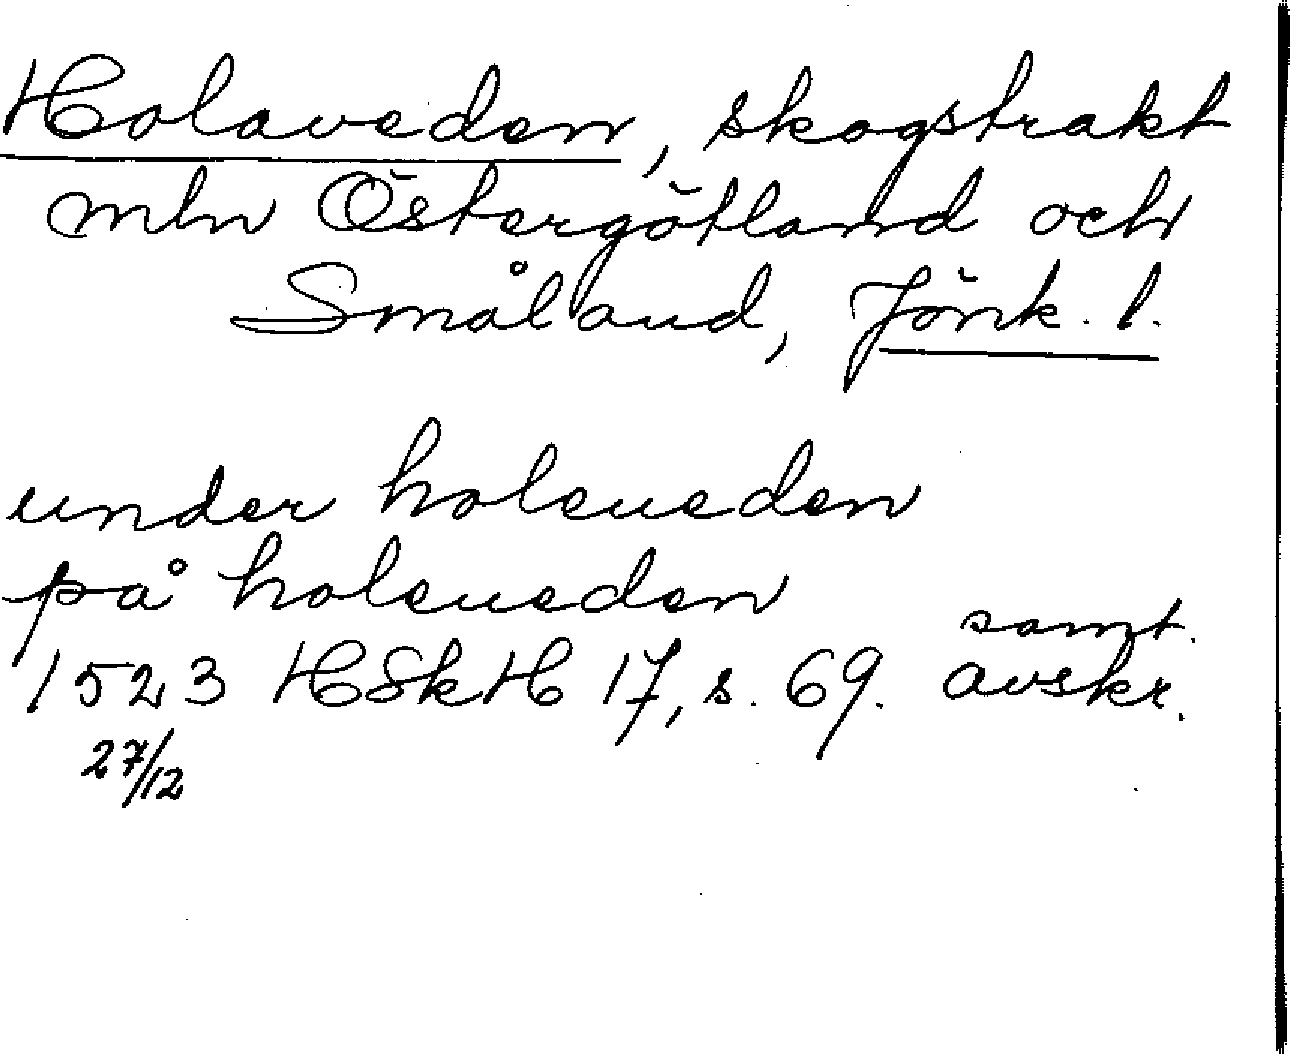 Holaveden, skogstrakt
mln Östergötland och
Småland, Jönk. l.
under holeueden
på holeueden
samt.
1523 HSkH 17, s. 69. avskr.
27/12